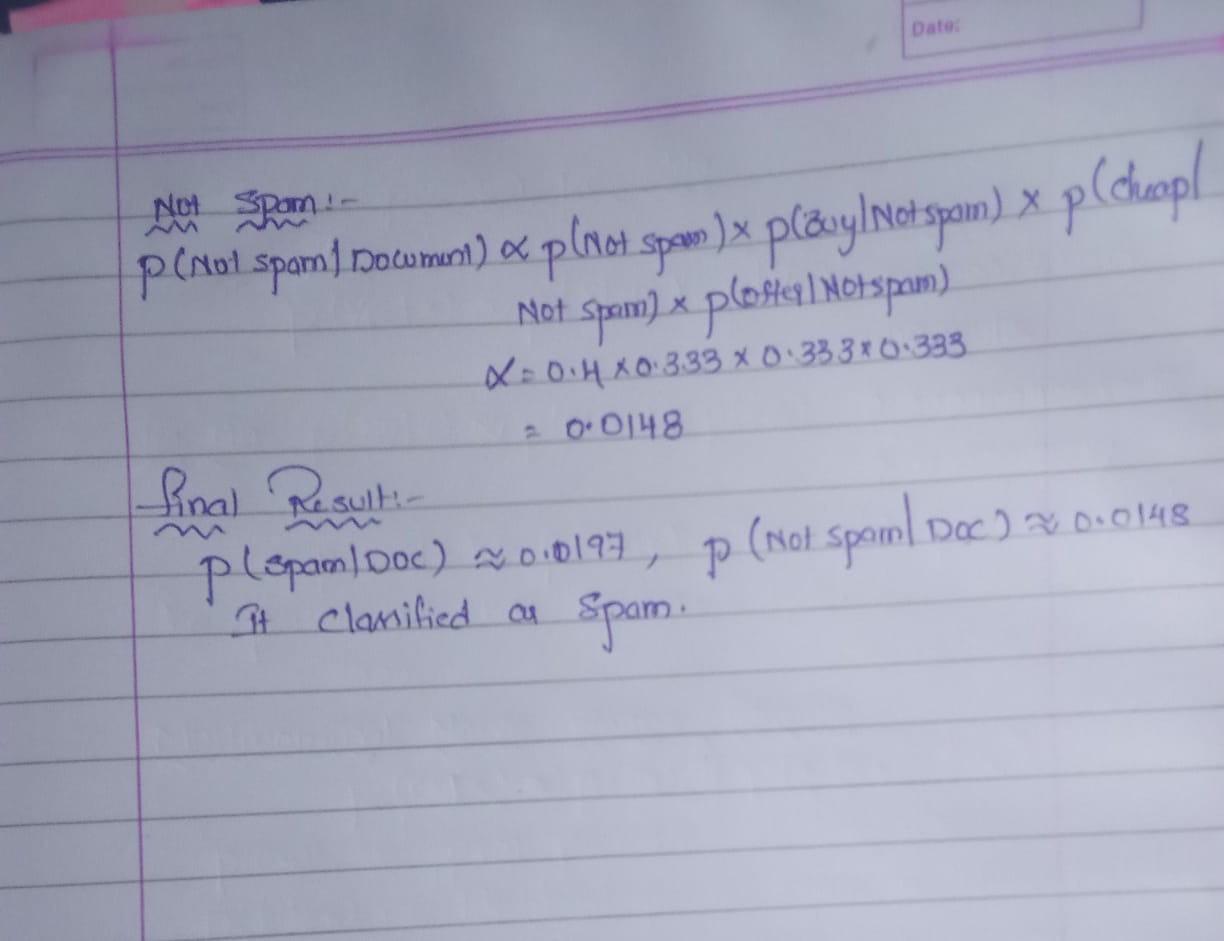 Date:
Not Spam:-
p(Not spam | Document) ∝ p(Not spam) x p(Buy|Not spam) x p(cheap|
Not spam) x p(offer|Not spam)
∝ = 0.4 x 0.333 x 0.333 x 0.333
= 0.0148
final Result:-
p(spam|Doc) ≈ 0.0197, p(Not spam|Doc) ≈ 0.0148
It classified as Spam.